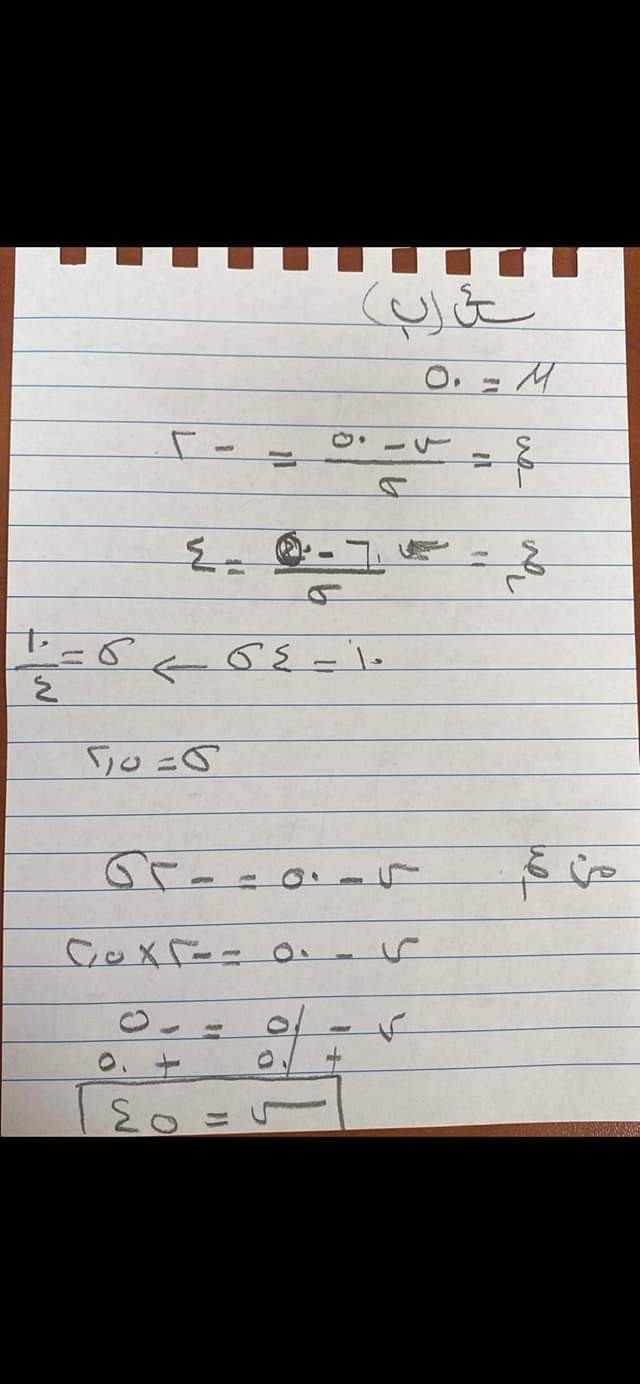 س٤ (ب)
μ = ٥٠
ع١ = (س - ٥٠)/σ = - ٢
ع٢ = (٦٠ - ٥٠)/σ = ٤
١٠ = ٤σ ← σ = ١٠/٤
σ = ٢,٥
من ع١ س - ٥٠ = - ٢σ
س - ٥٠ = - ٢ × ٢,٥
س - ٥٠ = - ٥
+ ٥٠ + ٥٠
س = ٤٥